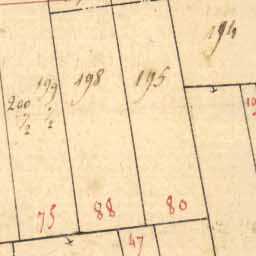 194
198
195
199
200
1/2
1/2
75
88
80
47